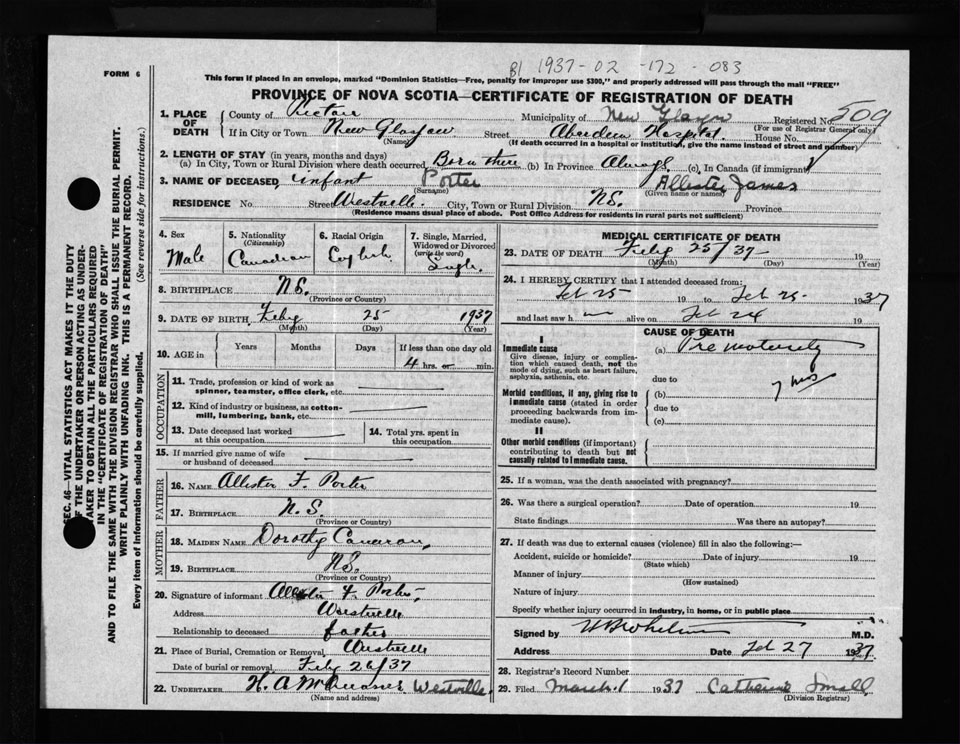 1937-02-172-083
FORM 6
This form if placed in an envelope, marked "Dominion Statistics—Free, penalty for improper use $300," and properly addressed will pass through the mail "FREE"
PROVINCE OF NOVA SCOTIA—CERTIFICATE OF REGISTRATION OF DEATH
SEC. 46—VITAL STATISTICS ACT MAKES IT THE DUTY
OF THE UNDERTAKER OR PERSON ACTING AS UNDER-
TAKER TO OBTAIN ALL THE PARTICULARS REQUIRED
IN THE "CERTIFICATE OF REGISTRATION OF DEATH"
AND TO FILE THE SAME WITH THE DIVISION REGISTRAR WHO SHALL ISSUE THE BURIAL PERMIT.
WRITE PLAINLY WITH UNFADING INK. THIS IS A PERMANENT RECORD.
Every item of information should be carefully supplied. (See reverse side for instructions.)
1. PLACE OF DEATH County of Pictou Municipality of New Glasgow Registered No. 509
(For use of Registrar General only)
If in City or Town New Glasgow Street Aberdeen Hospital House No.
(Name) (If death occurred in a hospital or institution, give the name instead of street and number)
2. LENGTH OF STAY (in years, months and days)
(a) In City, Town or Rural Division where death occurred Born there (b) In Province Always (c) In Canada (if immigrant)
3. NAME OF DECEASED infant Porter Allister James
(Surname) (Given name or names)
RESIDENCE No. Street Westville City, Town or Rural Division N.S. Province
(Residence means usual place of abode. Post Office Address for residents in rural parts not sufficient)
4. Sex 5. Nationality (Citizenship) 6. Racial Origin 7. Single, Married, Widowed or Divorced (write the word)
Male Canadian English Single
8. BIRTHPLACE N.S.
(Province or Country)
9. DATE OF BIRTH Feby 25 1937
(Month) (Day) (Year)
10. AGE in Years Months Days If less than one day old
4 hrs. or min.
OCCUPATION
11. Trade, profession or kind of work as
spinner, teamster, office clerk, etc.
12. Kind of industry or business, as cotton-
mill, lumbering, bank, etc.
13. Date deceased last worked
at this occupation
14. Total yrs. spent in
this occupation
15. If married give name of wife
or husband of deceased
FATHER
16. NAME Allister F. Porter
17. BIRTHPLACE N.S.
(Province or Country)
MOTHER
18. MAIDEN NAME Dorothy Cameron
19. BIRTHPLACE N.S.
(Province or Country)
20. Signature of informant Allister F. Porter
Address Westville
Relationship to deceased father
21. Place of Burial, Cremation or Removal Westville
Date of burial or removal Feby 26/37
22. UNDERTAKER H. A. Westville
(Name and address)
MEDICAL CERTIFICATE OF DEATH
23. DATE OF DEATH Feby 25/37
(Month) (Day) (Year)
24. I HEREBY CERTIFY that I attended deceased from:
Feb 25 19 to Feb 25 1937
and last saw h alive on Feb 24 19
CAUSE OF DEATH
I
Immediate cause (a) Prematurity
Give disease, injury or complica-
tion which caused death, not the
mode of dying, such as heart failure,
asphyxia, asthenia, etc.
due to
7 mos
Morbid conditions, if any, giving rise to
immediate cause (stated in order
proceeding backwards from im-
mediate cause).
(b)
due to
(c)
II
Other morbid conditions (if important)
contributing to death but not
causally related to immediate cause.
25. If a woman, was the death associated with pregnancy?
26. Was there a surgical operation? Date of operation 19
State findings Was there an autopsy?
27. If death was due to external causes (violence) fill in also the following:—
Accident, suicide or homicide? Date of injury 19
(State which)
Manner of injury
(How sustained)
Nature of injury
Specify whether injury occurred in industry, in home, or in public place
Signed by M.D.
Address Date Feb 27 1937
28. Registrar's Record Number
29. Filed March 1 1937 Catherine Small
(Division Registrar)